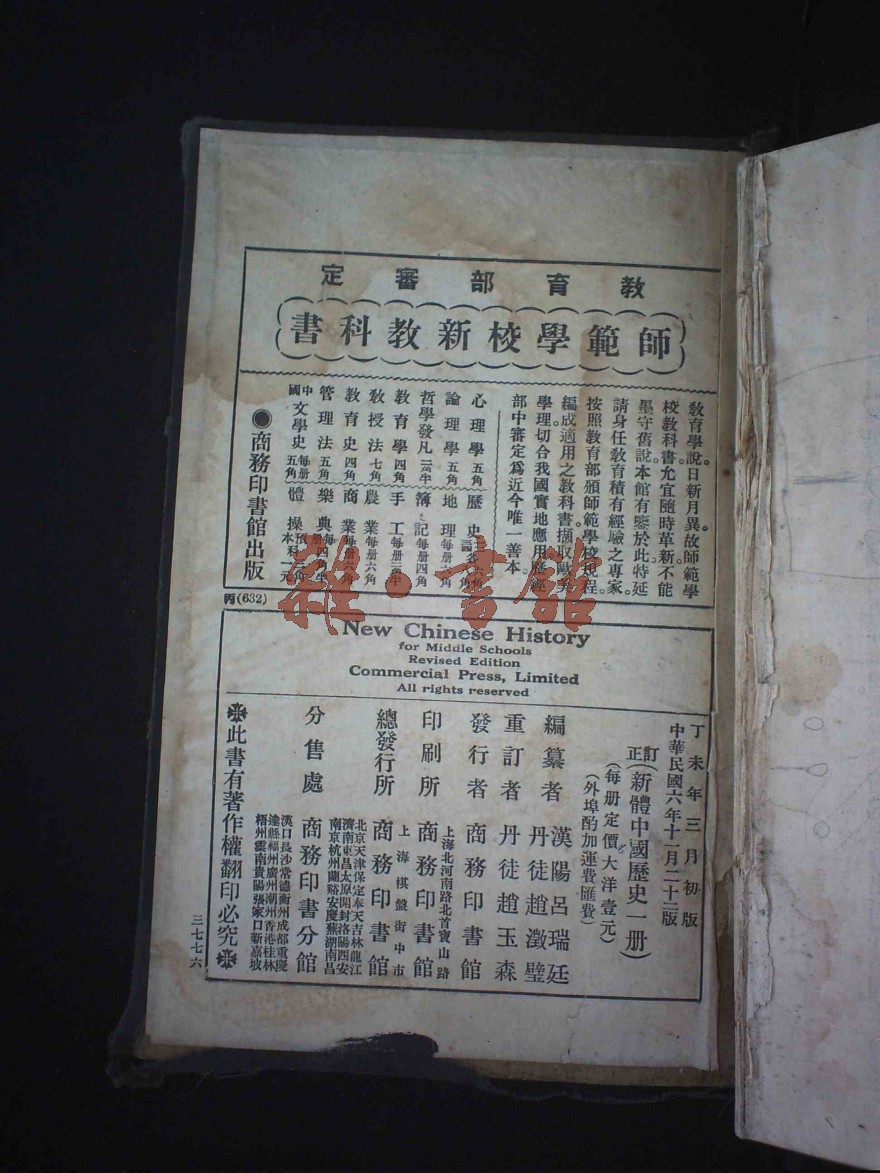 教育部審定
師範學校新教科書
教育學說。日新月異。故師範學
校教科書。尤宜隨時革新。不能
墨守舊說。本館有鑒於此。特延
請身任教育積有經驗之專家。
按照教育部頒師範學校規程。
編成適用之教科書。擷取歐美
學理。切合我國實地應用。歷經
部中審定。爲近今唯一善本。
心理學 五角
論理學 五角
哲學發凡
教育學 四角
教授法 七角
教育史 四角
管理法 五角
中國文學史 每册五角
歷史
地理
簿記 每册四角
手工
農業 每册六角
商業 每册六角
樂典
體操
●商務印書館出版
丙(632)
雜·書館
New Chinese History
for Middle Schools
Revised Edition
Commercial Press, Limited
All rights reserved
丁未年三月初版
中華民國六年十一月二十二版
訂正(新體中國歷史一册)
(每册定價大洋壹元)
(外埠酌加運費匯費)
編纂者 漢陽呂瑞廷 丹徒趙澂璧
重訂者 丹徒趙玉森
發行者 商務印書館
印刷所 上海北河南路北首寶山路 商務印書館
總發行所 上海棋盤街中市 商務印書館
分售處 北京天津保定奉天吉林龍江
濟南東昌太原開封洛陽西安
南京杭州蘭谿安慶蕪湖南昌
商務印書分館
漢口長沙常德衡州成都重慶
達縣福州廣州潮州香港桂林
梧州雲南貴陽張家口新嘉坡
此書有著作權翻印必究
三七七六